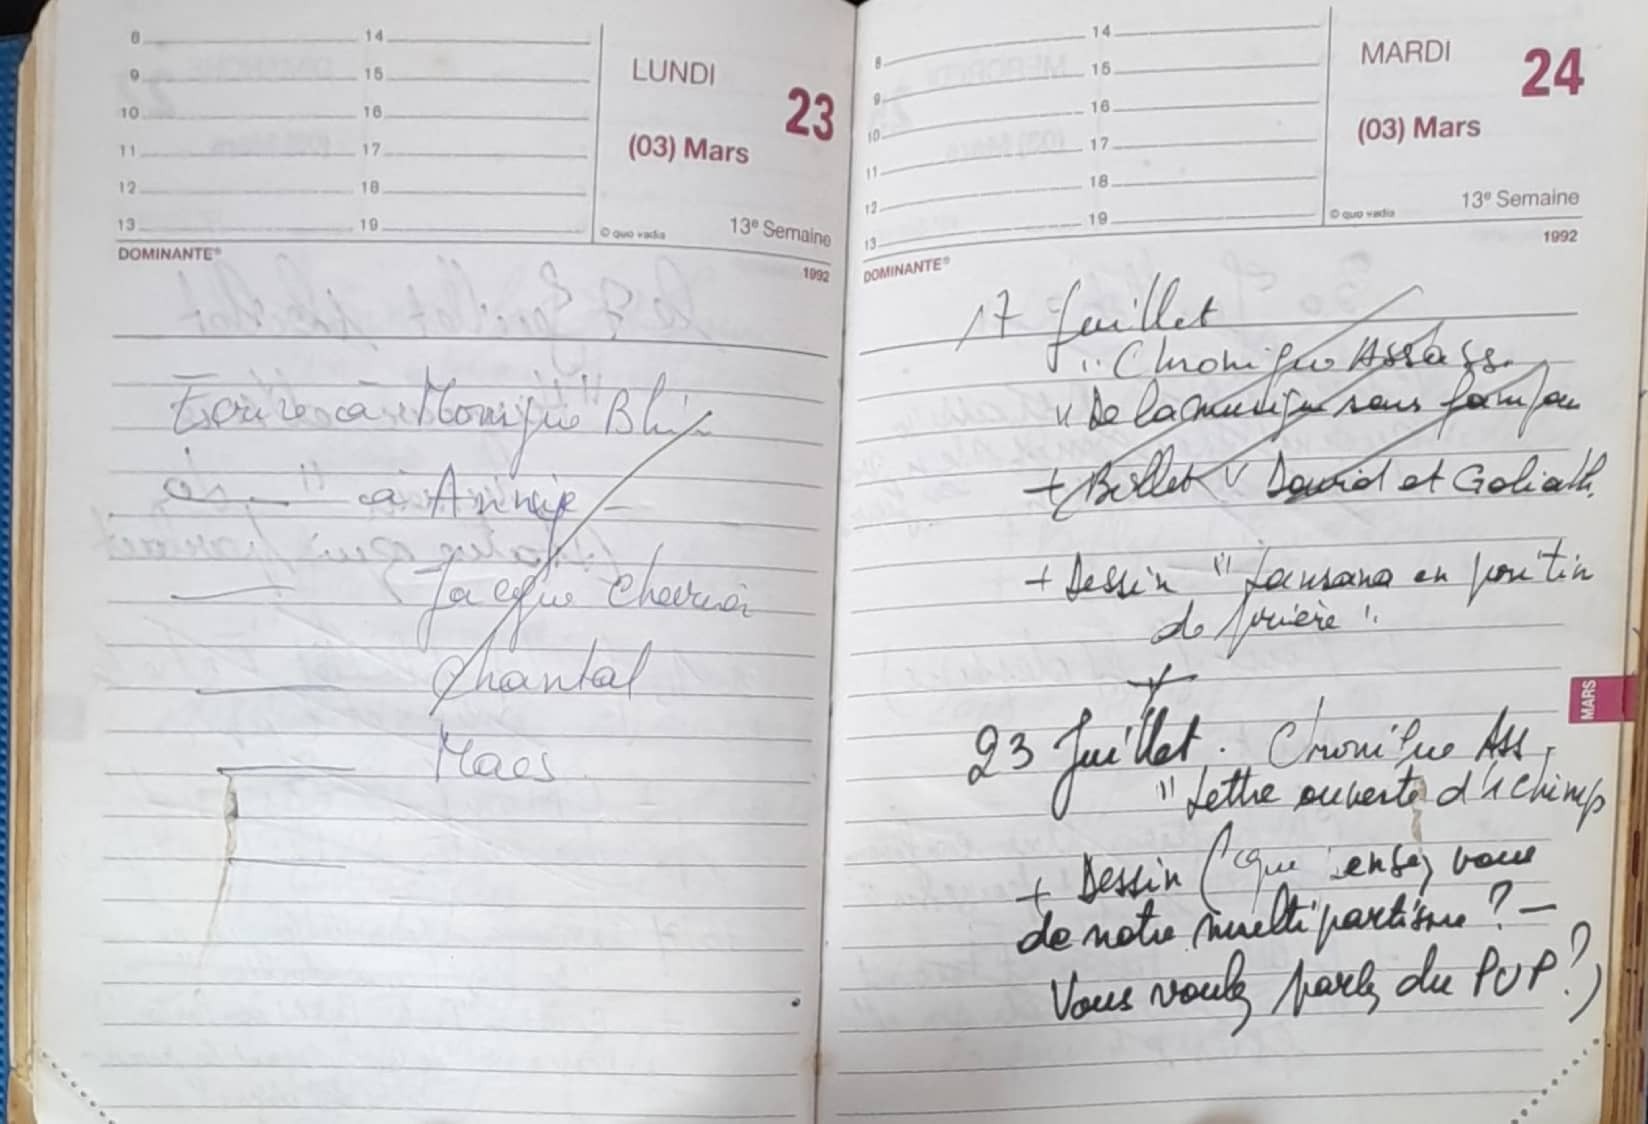 8 14
9 15
10 16
11 17
12 18
13 19
LUNDI
23
(03) Mars
© quo vadis
13e Semaine
DOMINANTE®
1992
Ecrire à Monique Blin
— à Annie
Jacque Chevrier
Chantal
Maes
8 14
9 15
10 16
11 17
12 18
13 19
MARDI
24
(03) Mars
© quo vadis
13e Semaine
DOMINANTE®
1992
17 Juillet
" Chronique Assass.
" De la musique sous
+ Billet " David et Goliath
+ Dessin " Lansana en
de prière ".
+
23 Juillet. Chronique Ass.
" Lettre ouverte d'1 chimp
+ Dessin (que pensez vous
de notre multipartisme ? —
Vous voulez parlez du PUP ?)
MARS